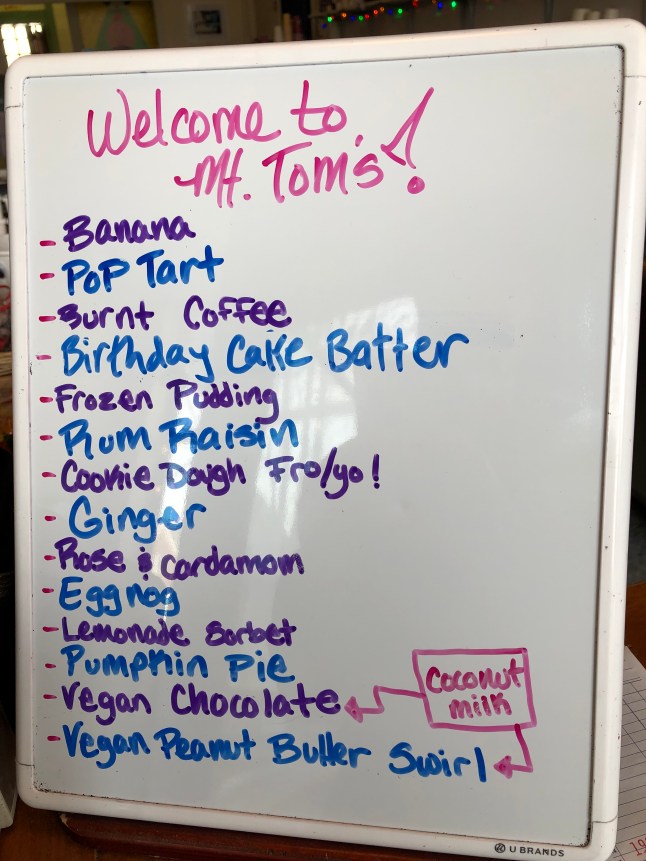 Welcome to
Mt. Tom's!
- Banana
- Pop Tart
- Burnt Coffee
- Birthday Cake Batter
- Frozen Pudding
- Rum Raisin
- Cookie Dough Fro/yo!
- Ginger
- Rose & Cardamom
- Eggnog
- Lemonade Sorbet
- Pumpkin Pie
- Vegan Chocolate
- Vegan Peanut Butter Swirl
Coconut
milk
U BRANDS